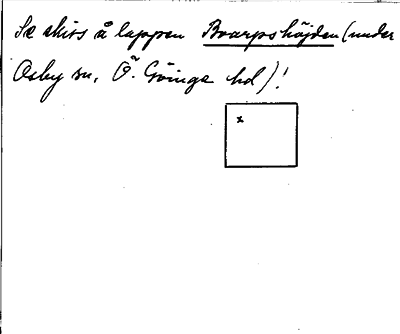 Se skiss å lappen Boarpshöjden (under
Osby sn, Ö. Göinge hd)!
x